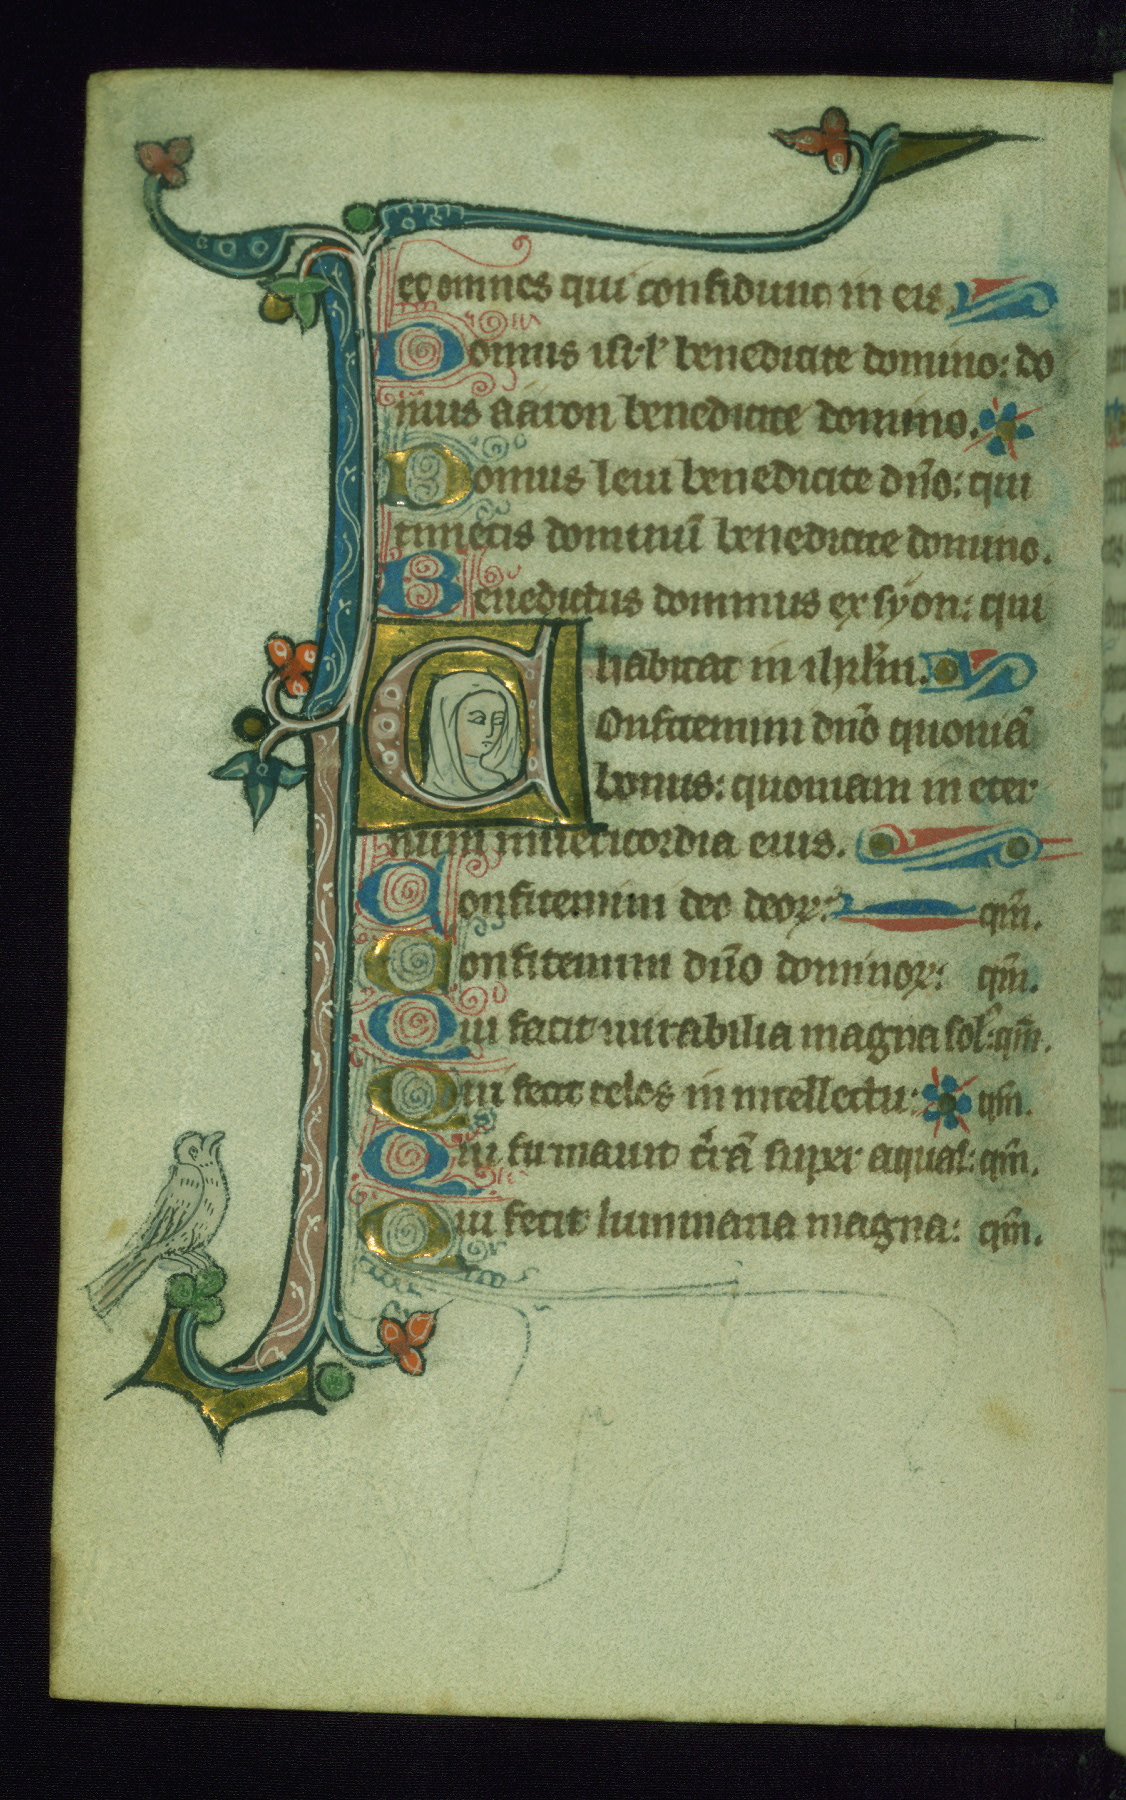 et omnes qui confidunt in eis.
Domus isr̄l benedicite domino: do
mus aaron benedicite domino.
Domus leui benedicite dn̄o: qui
timetis dominū benedicite domino.
Benedictus dominus ex syon: qui
habitat in ihrl̄m.
Confitemini dn̄o quoniā
bonus: quoniam in eter
num misericordia eius.
Confitemini deo deoꝝ: qm̄.
Confitemini dn̄o dominoꝝ: qm̄.
Qui facit mirabilia magna sol̄: qm̄.
Qui fecit celos in intellectu: qm̄.
Qui firmauit t̄rā super aquas: qm̄.
Qui fecit luminaria magna: qm̄.